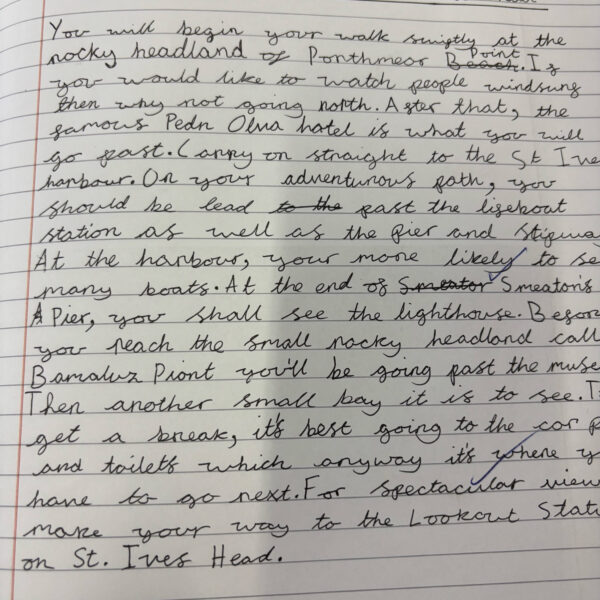 You will begin your walk swiftly at the
rocky headland of Porthmeor Beach Point. If
you would like to watch people windsurf
then why not going north. After that, the
famous Pedn Olva hotel is what you will
go past. Carry on straight to the St Ives
harbour. On your adventurous path, you
should be lead to the past the lifeboat
station as well as the Pier and slipway
At the harbour, your more likely to se
many boats. At the end of Smeator Smeaton's
Pier, you shall see the lighthouse. Before
you reach the small rocky headland call
Bamaluz Piont you'll be going past the muse
Then another small bay it is to see. T
get a break, it's best going to the car p
and toilets which anyway it's where y
have to go next. For spectacular view
make your way to the Lookout Stati
on St. Ives Head.